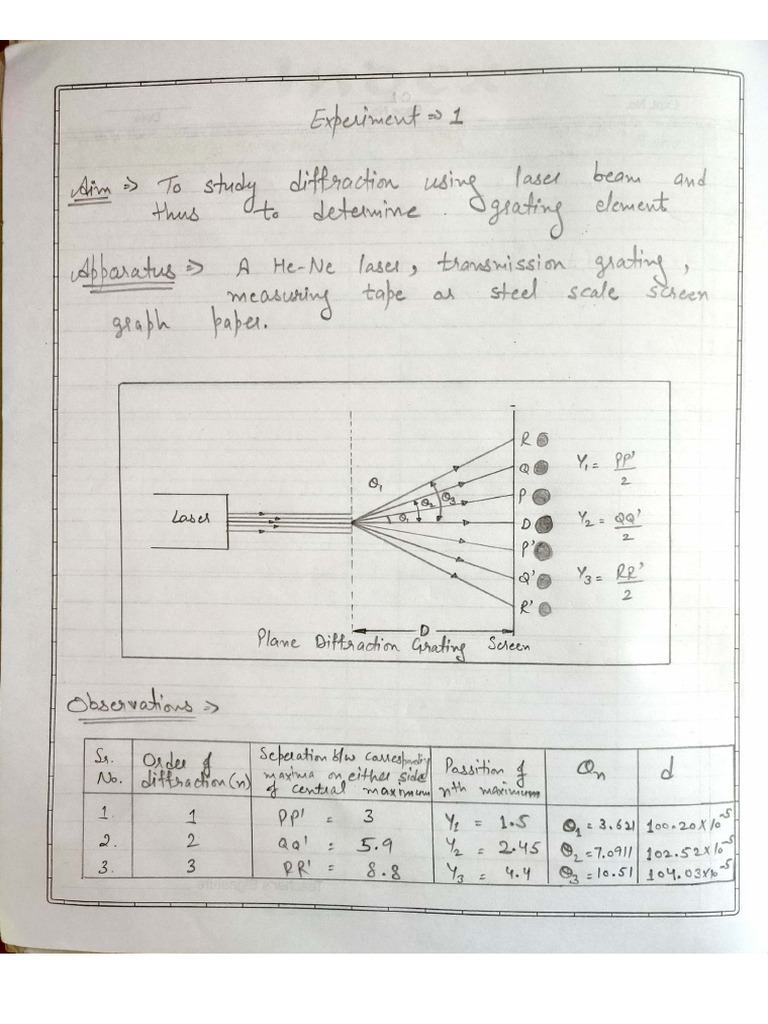 Experiment ⇒ 1
Aim ⇒ To study diffraction using laser beam and
thus to determine grating element
Apparatus ⇒ A He-Ne laser, transmission grating,
measuring tape or steel scale screen
graph paper.
R
Q
P
D
P'
Q'
R'
Laser
θ1
θ1
θ2
θ3
Y1 = PP'/2
Y2 = QQ'/2
Y3 = RR'/2
D
Plane Diffraction Grating Screen
Observations ⇒
Sr. No. Order of diffraction (n) Seperation b/w Corresponding maxima on either side of central maximum Possition of nth maximum θn d
1. 1 PP' = 3 Y1 = 1.5 θ1 = 3.621 100.20×10-5
2. 2 QQ' = 5.9 Y2 = 2.45 θ2 = 7.0911 102.52×10-5
3. 3 RR' = 8.8 Y3 = 4.4 θ3 = 10.51 104.03×10-5